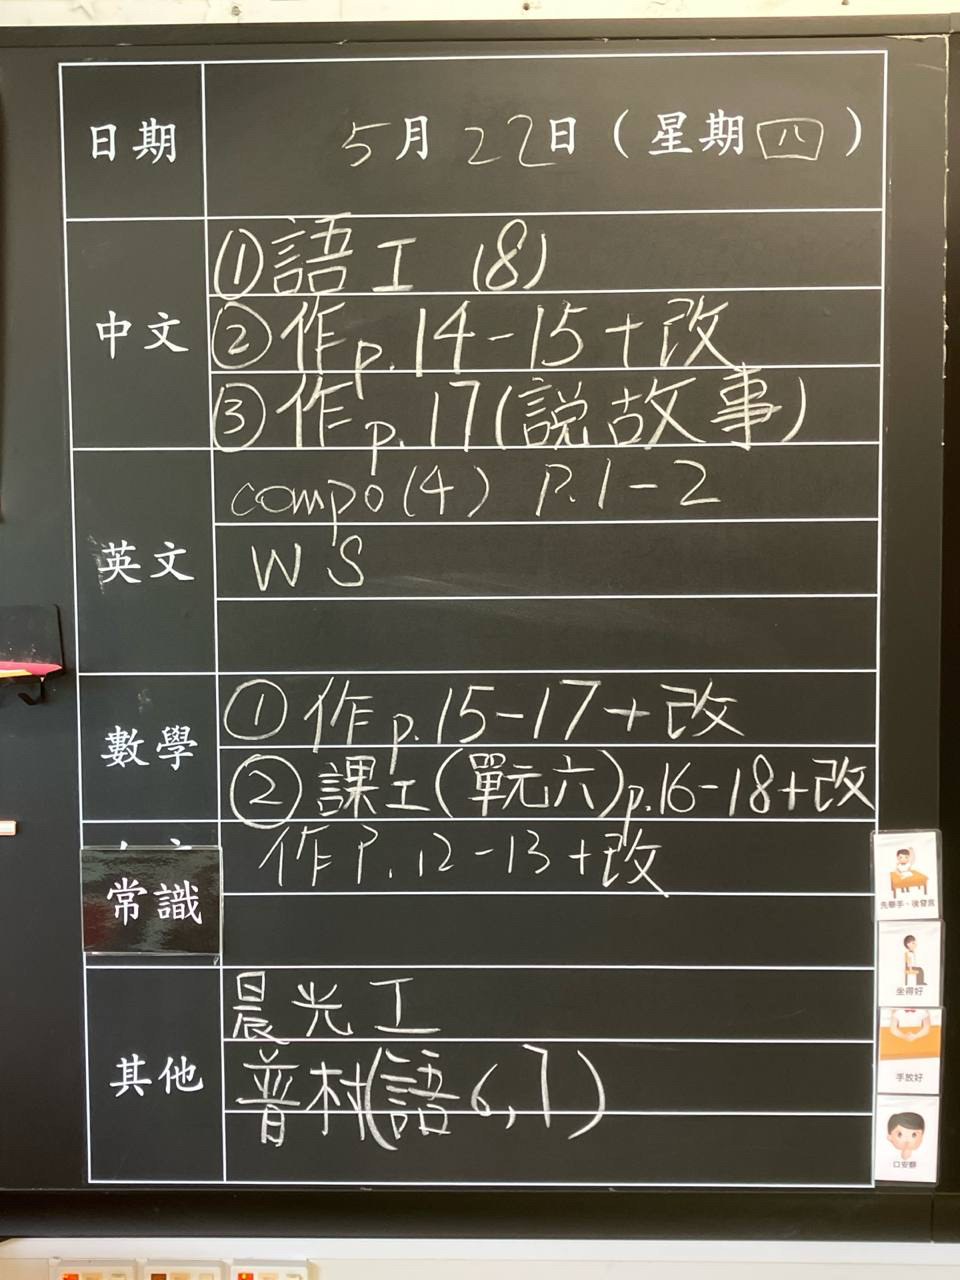 日期 5月22日(星期四)
中文
①語工 (8)
②作p.14-15+改
③作p.17(説故事)
英文
compo(4) P.1-2
WS
數學
①作p.15-17+改
②課工(單元六)p.16-18+改
常識
作P.12-13+改
其他
晨光工
普村(語6,7)
先舉手、後發言
坐得好
手放好
口安靜